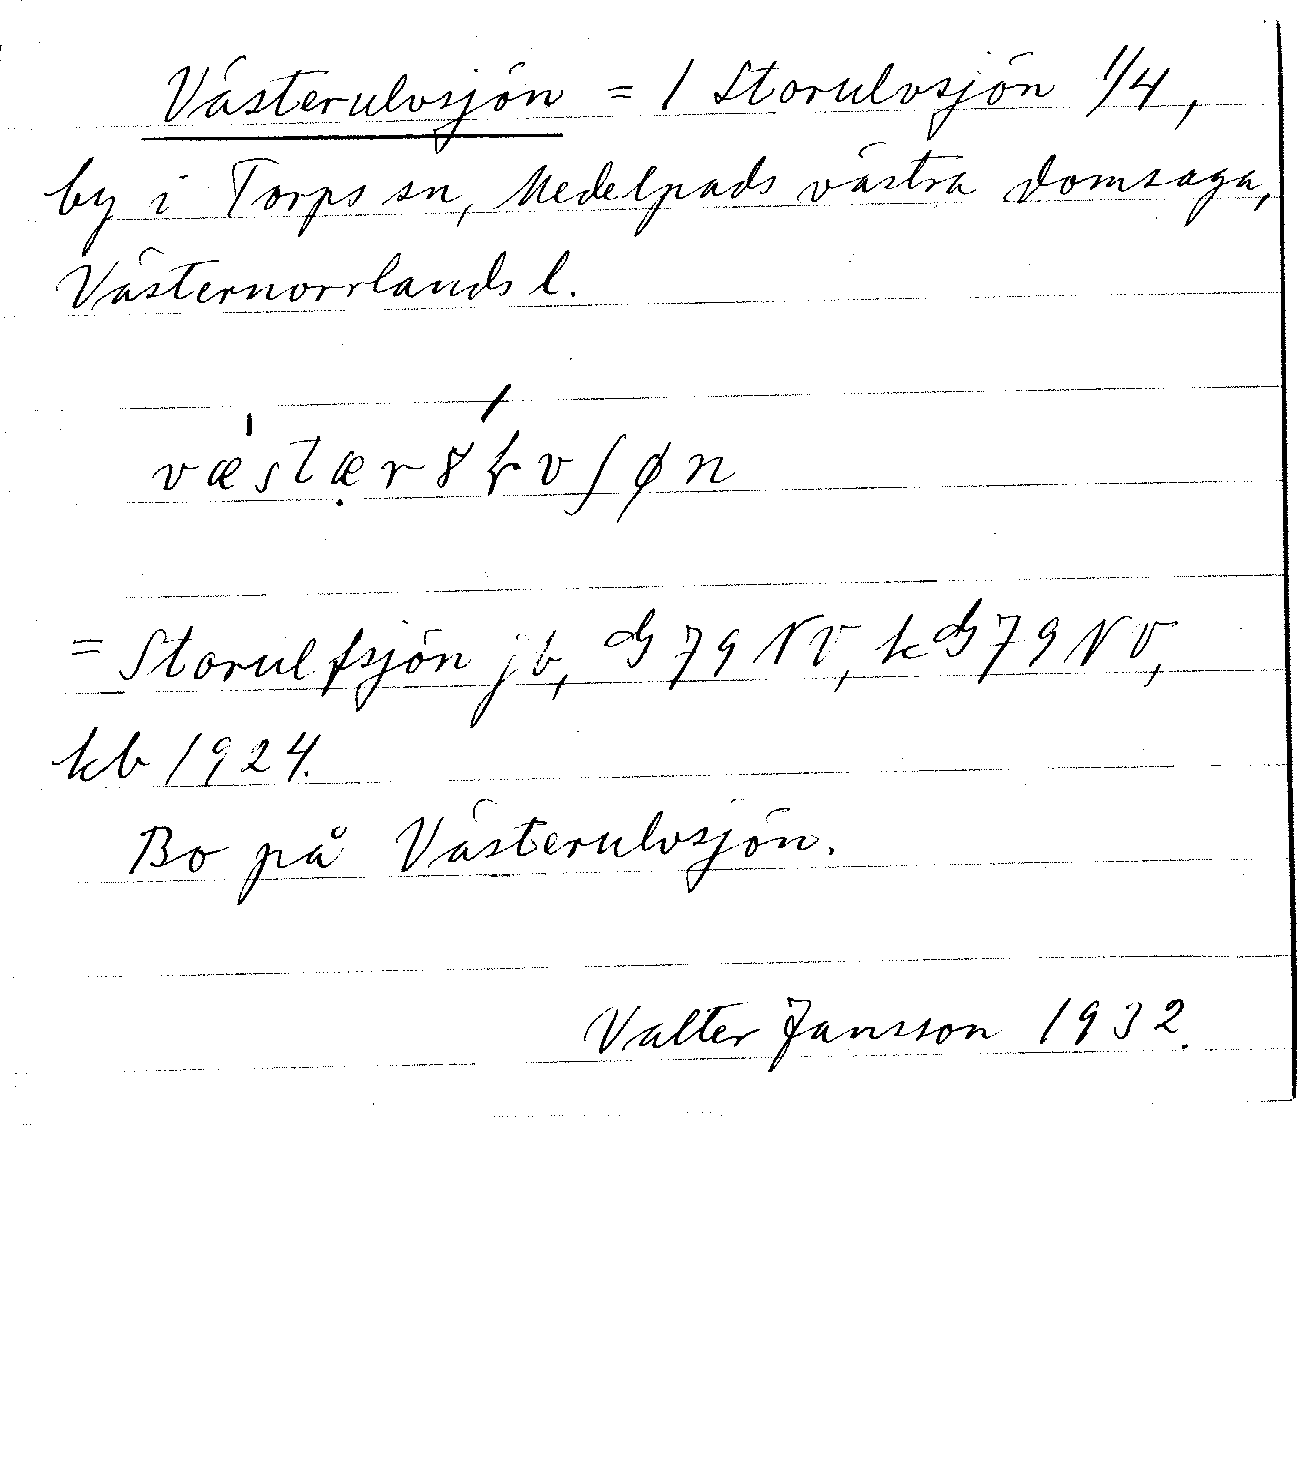 Västerulvsjön = 1 Storulvsjön 1/4,
by i Torps sn, Medelpads västra domsaga,
Västernorrlands l.
= Storulfsjön jb, G 79 NV, kG 79 NV,
kb 1924.
Bo på Västerulvsjön.
Valter Jansson 1932.